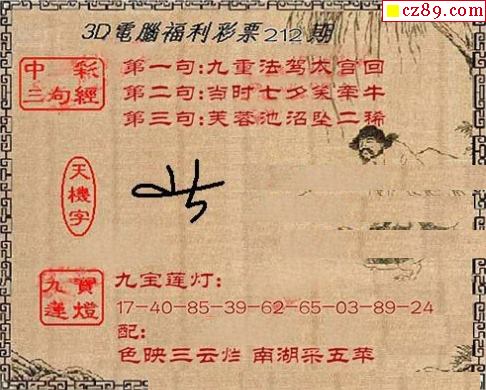 cz89.com
3D電腦福利彩票212期
中彩
三句經
第一句:九重法驾太宫回
第二句:当时七夕笑牵牛
第三句:芙蓉池沼坠二稀
天機字
九寶
莲燈
九宝莲灯:
17-40-85-39-62-65-03-89-24
配:
色映三云烂 南湖采五苹